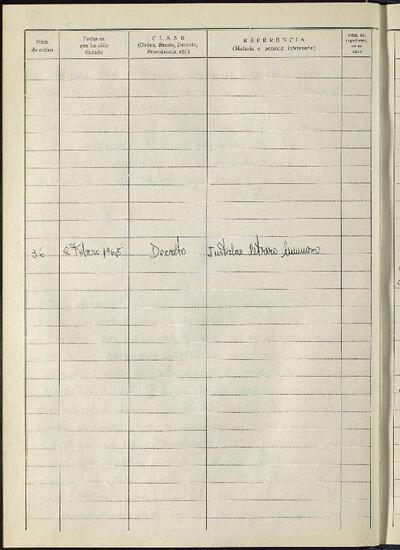 Núm. de orden
Fecha en que ha sido dictado
CLASE
(Orden, Bando, Decreto, Providencia, etc.)
REFERENCIA
(Materia o persona interesada)
Núm. del expediente
36 2 Febrero 1965 Decreto Instalar letrero luminoso